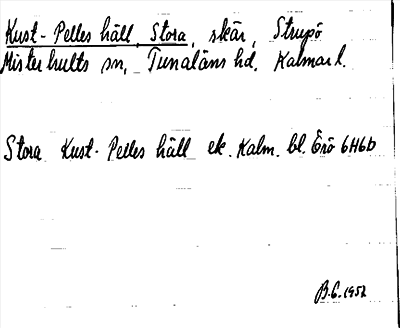 Kust-Pelles häll, Stora, skär, Strupö
Misterhults sn, Tunaläns hd. Kalmar l.
Stora Kust-Pelles häll ek. Kalm. bl. Örö 6H6b
B.G. 1952